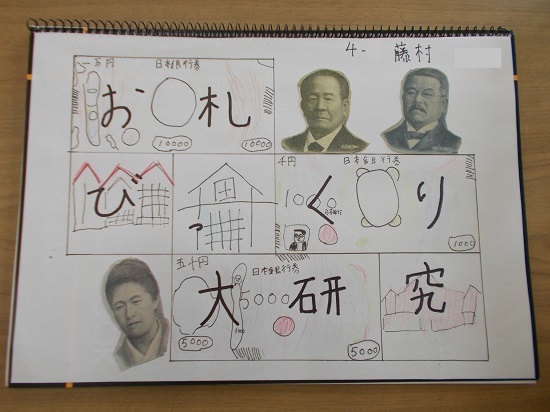 4- 藤村
一万円 日本銀行券
お札
10000 10000
び
千円 日本銀行券
1000
くり
1000
五千円
日本銀行券
大5000研
究
5000 5000